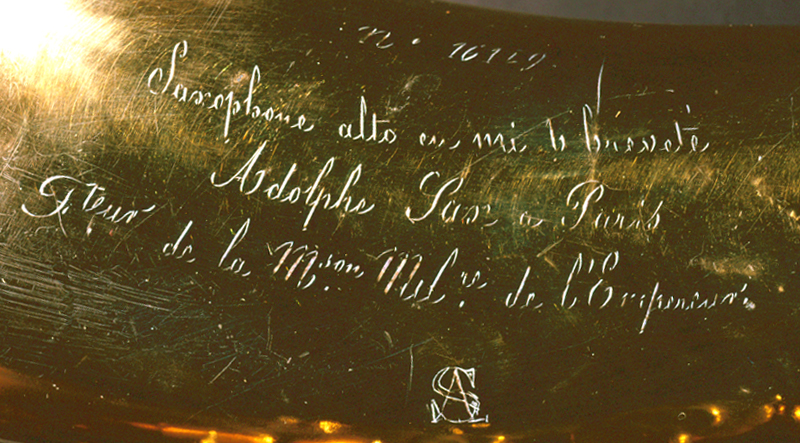 N° 16129.
Saxophone alto en mi b breveté
Adolphe Sax a Paris
Fteur de la Mson Milre de l'Empereur.
AS